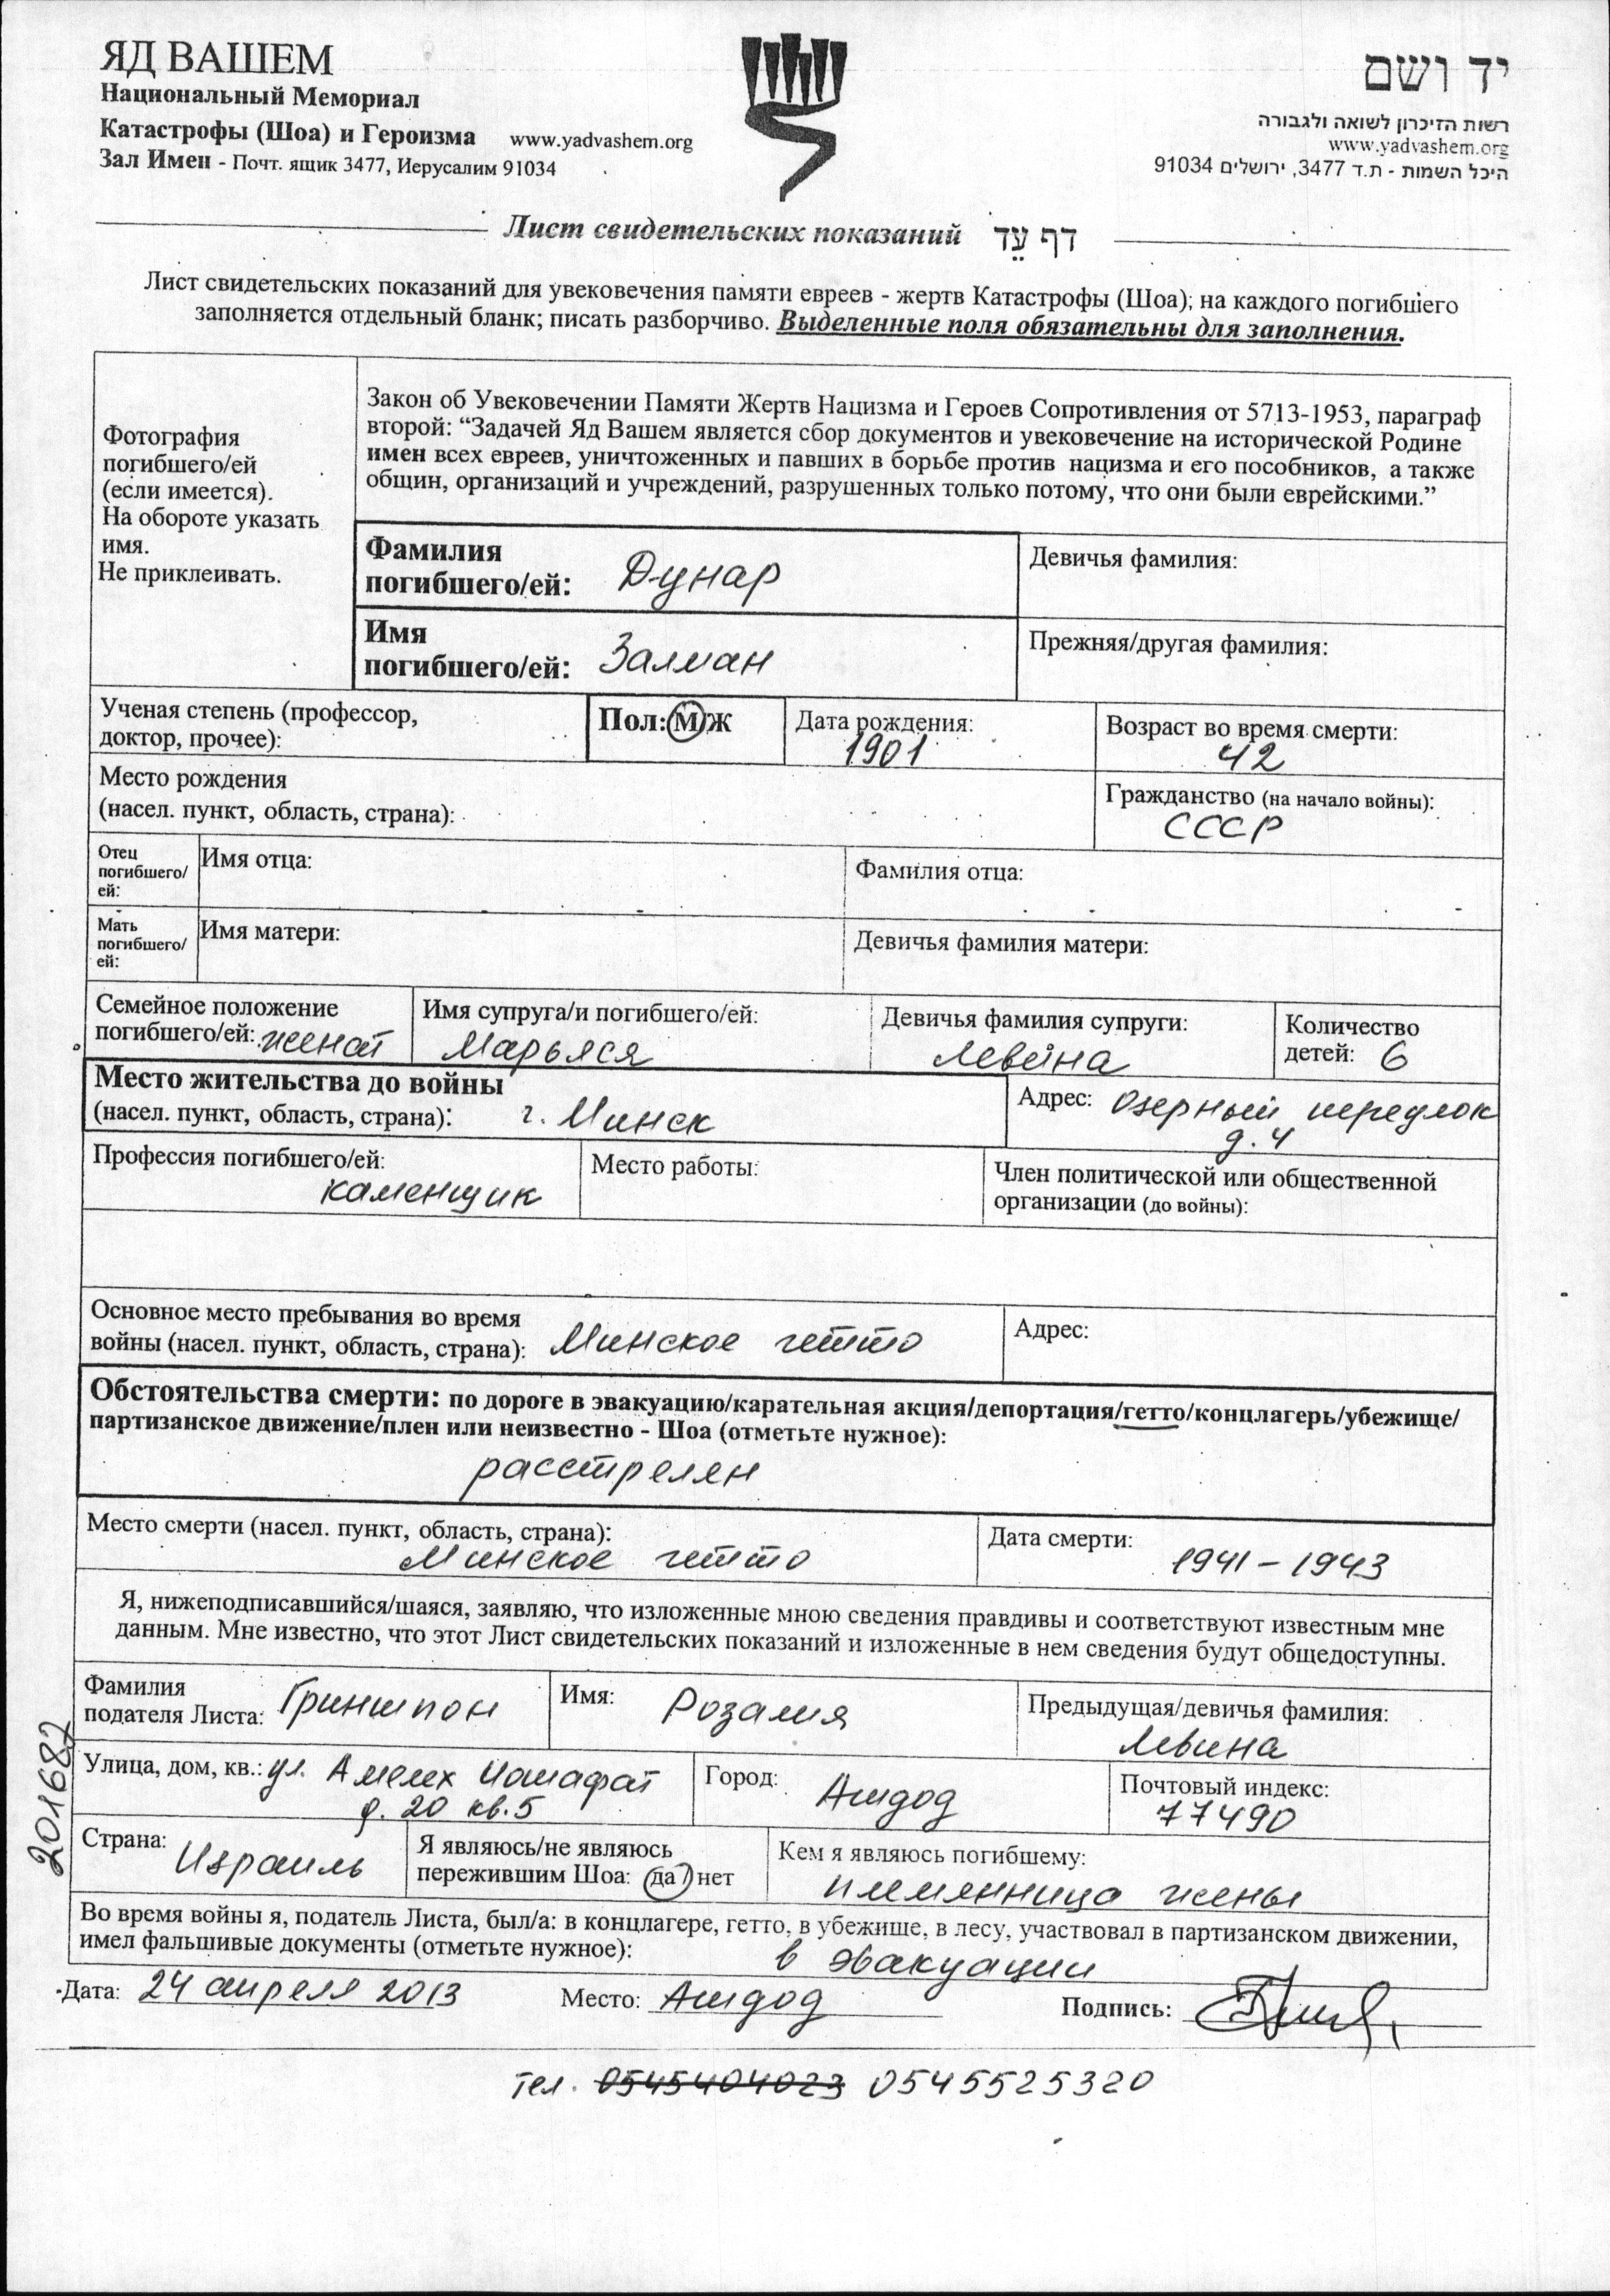 ЯД ВАШЕМ
Национальный Мемориал
Катастрофы (Шоа) и Героизма www.yadvashem.org
Зал Имен - Почт. ящик 3477, Иерусалим 91034
יד ושם
רשות הזיכרון לשואה ולגבורה
www.yadvashem.org
היכל השמות - ת.ד 3477, ירושלים 91034
Лист свидетельских показаний דף עֵד
Лист свидетельских показаний для увековечения памяти евреев - жертв Катастрофы (Шоа); на каждого погибшего
заполняется отдельный бланк; писать разборчиво. Выделенные поля обязательны для заполнения.
Фотография
погибшего/ей
(если имеется).
На обороте указать
имя.
Не приклеивать.
Закон об Увековечении Памяти Жертв Нацизма и Героев Сопротивления от 5713-1953, параграф
второй: “Задачей Яд Вашем является сбор документов и увековечение на исторической Родине
имен всех евреев, уничтоженных и павших в борьбе против нацизма и его пособников, а также
общин, организаций и учреждений, разрушенных только потому, что они были еврейскими.”
Фамилия
погибшего/ей: Дунар
Девичья фамилия:
Имя
погибшего/ей: Залман
Прежняя/другая фамилия:
Ученая степень (профессор,
доктор, прочее):
Пол: М/Ж
Дата рождения:
1901
Возраст во время смерти:
42
Место рождения
(насел. пункт, область, страна):
Гражданство (на начало войны):
СССР
Отец
погибшего/
ей:
Имя отца:
Фамилия отца:
Мать
погибшего/
ей:
Имя матери:
Девичья фамилия матери:
Семейное положение
погибшего/ей: женат
Имя супруга/и погибшего/ей:
Марьяся
Девичья фамилия супруги:
Левина
Количество
детей: 6
Место жительства до войны
(насел. пункт, область, страна): г. Минск
Адрес: Озерный переулок
д. 4
Профессия погибшего/ей:
каменщик
Место работы:
Член политической или общественной
организации (до войны):
Основное место пребывания во время
войны (насел. пункт, область, страна): Минское гетто
Адрес:
Обстоятельства смерти: по дороге в эвакуацию/карательная акция/депортация/гетто/концлагерь/убежище/
партизанское движение/плен или неизвестно - Шоа (отметьте нужное):
расстрелян
Место смерти (насел. пункт, область, страна):
Минское гетто
Дата смерти:
1941 - 1943
Я, нижеподписавшийся/шаяся, заявляю, что изложенные мною сведения правдивы и соответствуют известным мне
данным. Мне известно, что этот Лист свидетельских показаний и изложенные в нем сведения будут общедоступны.
Фамилия
подателя Листа: Гриншпон
Имя: Розалия
Предыдущая/девичья фамилия:
Левина
Улица, дом, кв.: ул. Амелех Иошафат
д. 20 кв. 5
Город: Ашдод
Почтовый индекс:
77490
Страна: Израиль
Я являюсь/не являюсь
пережившим Шоа: да/нет
Кем я являюсь погибшему:
племянница жены
Во время войны я, податель Листа, был/а: в концлагере, гетто, в убежище, в лесу, участвовал в партизанском движении,
имел фальшивые документы (отметьте нужное): в эвакуации
Дата: 24 апреля 2013 Место: Ашдод Подпись:
тел. 0545404023 0545525320
201682